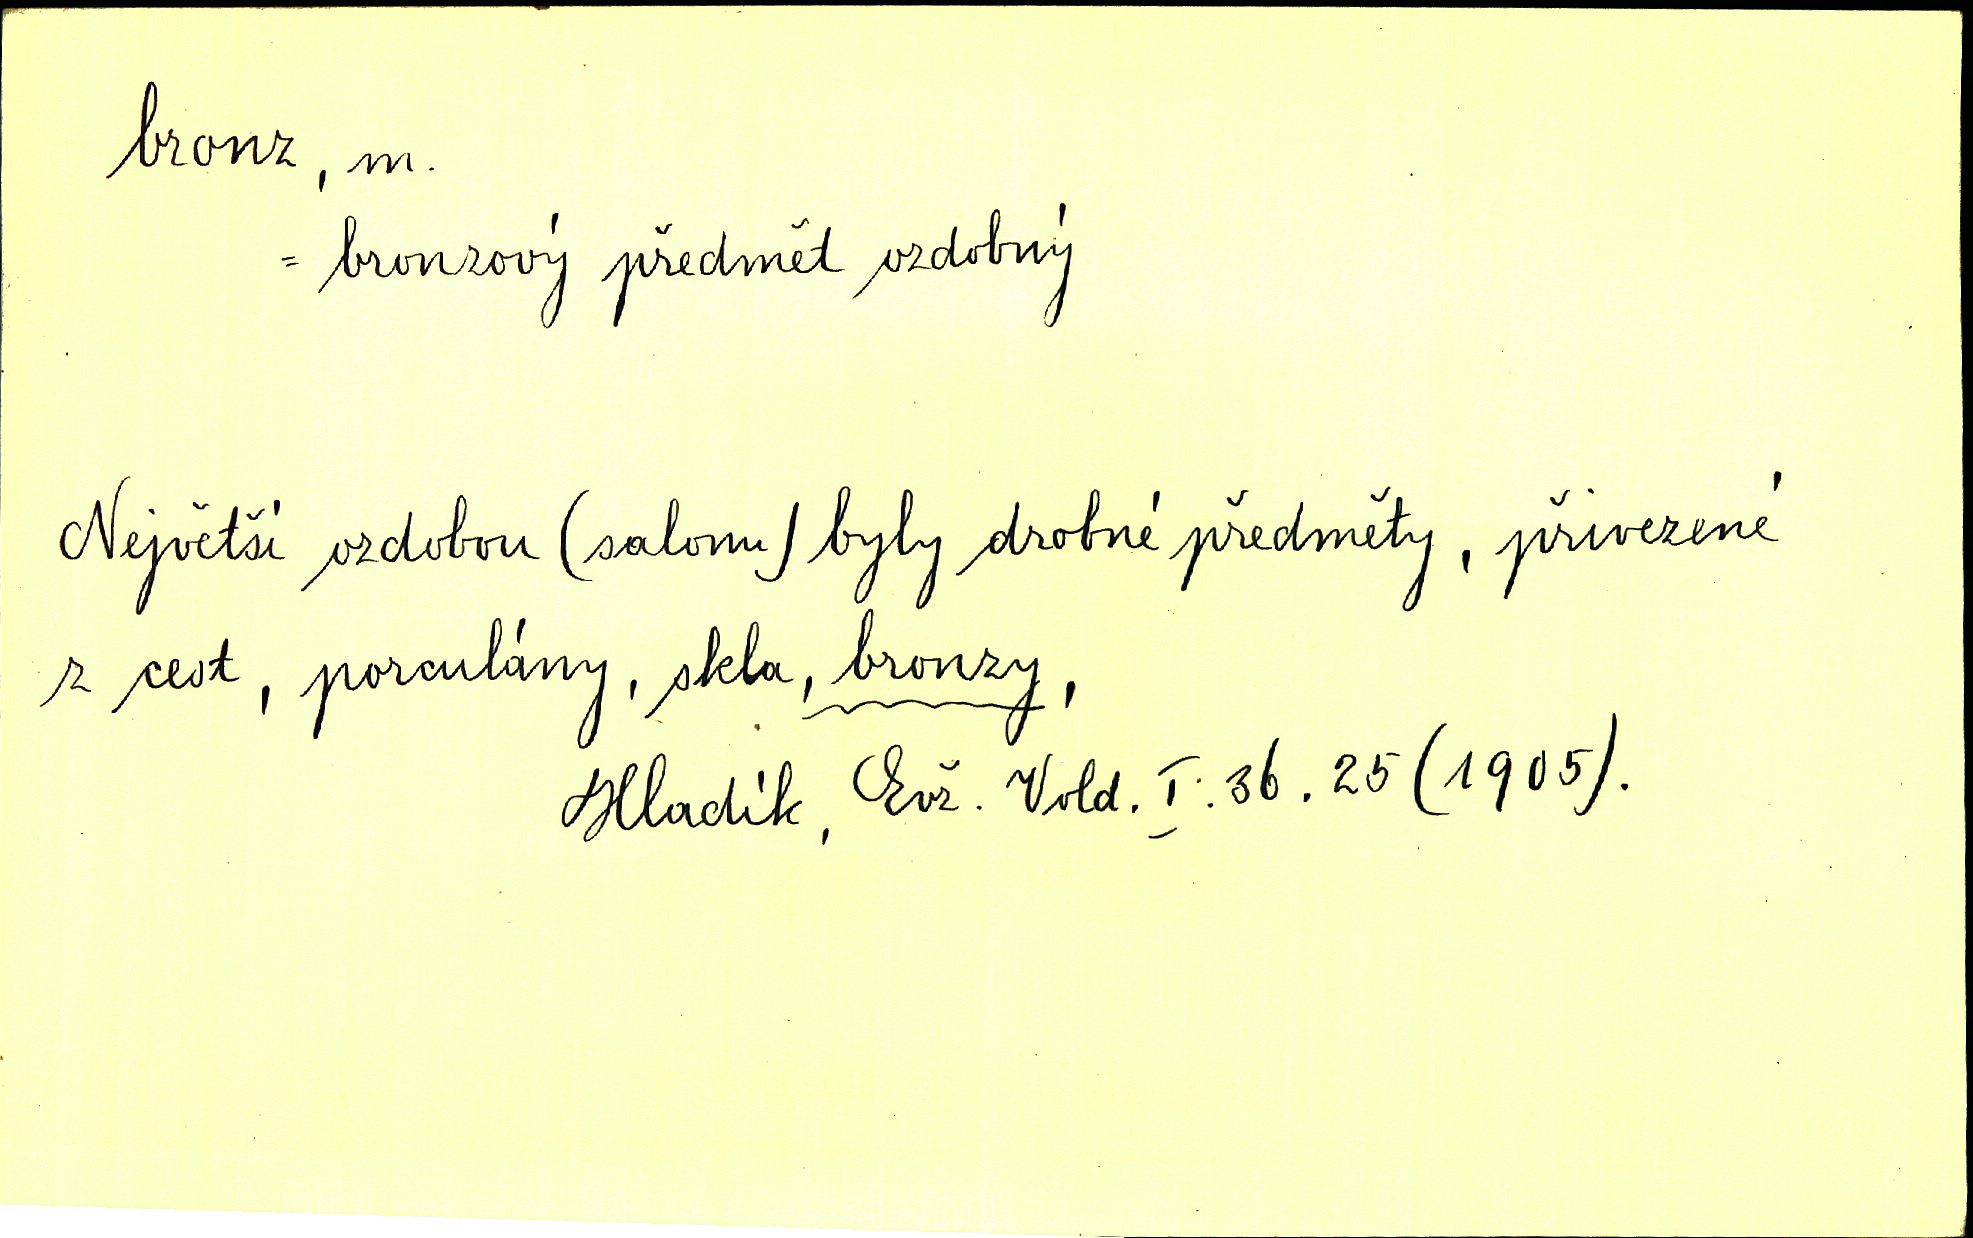 bronz, m.
= bronzový předmět ozdobný
Největší ozdobou (salonu) byly drobné předměty, přivezené
z cest, porculány, skla, bronzy,
Hladík, Evž. Vold. I. 36. 25 (1905).